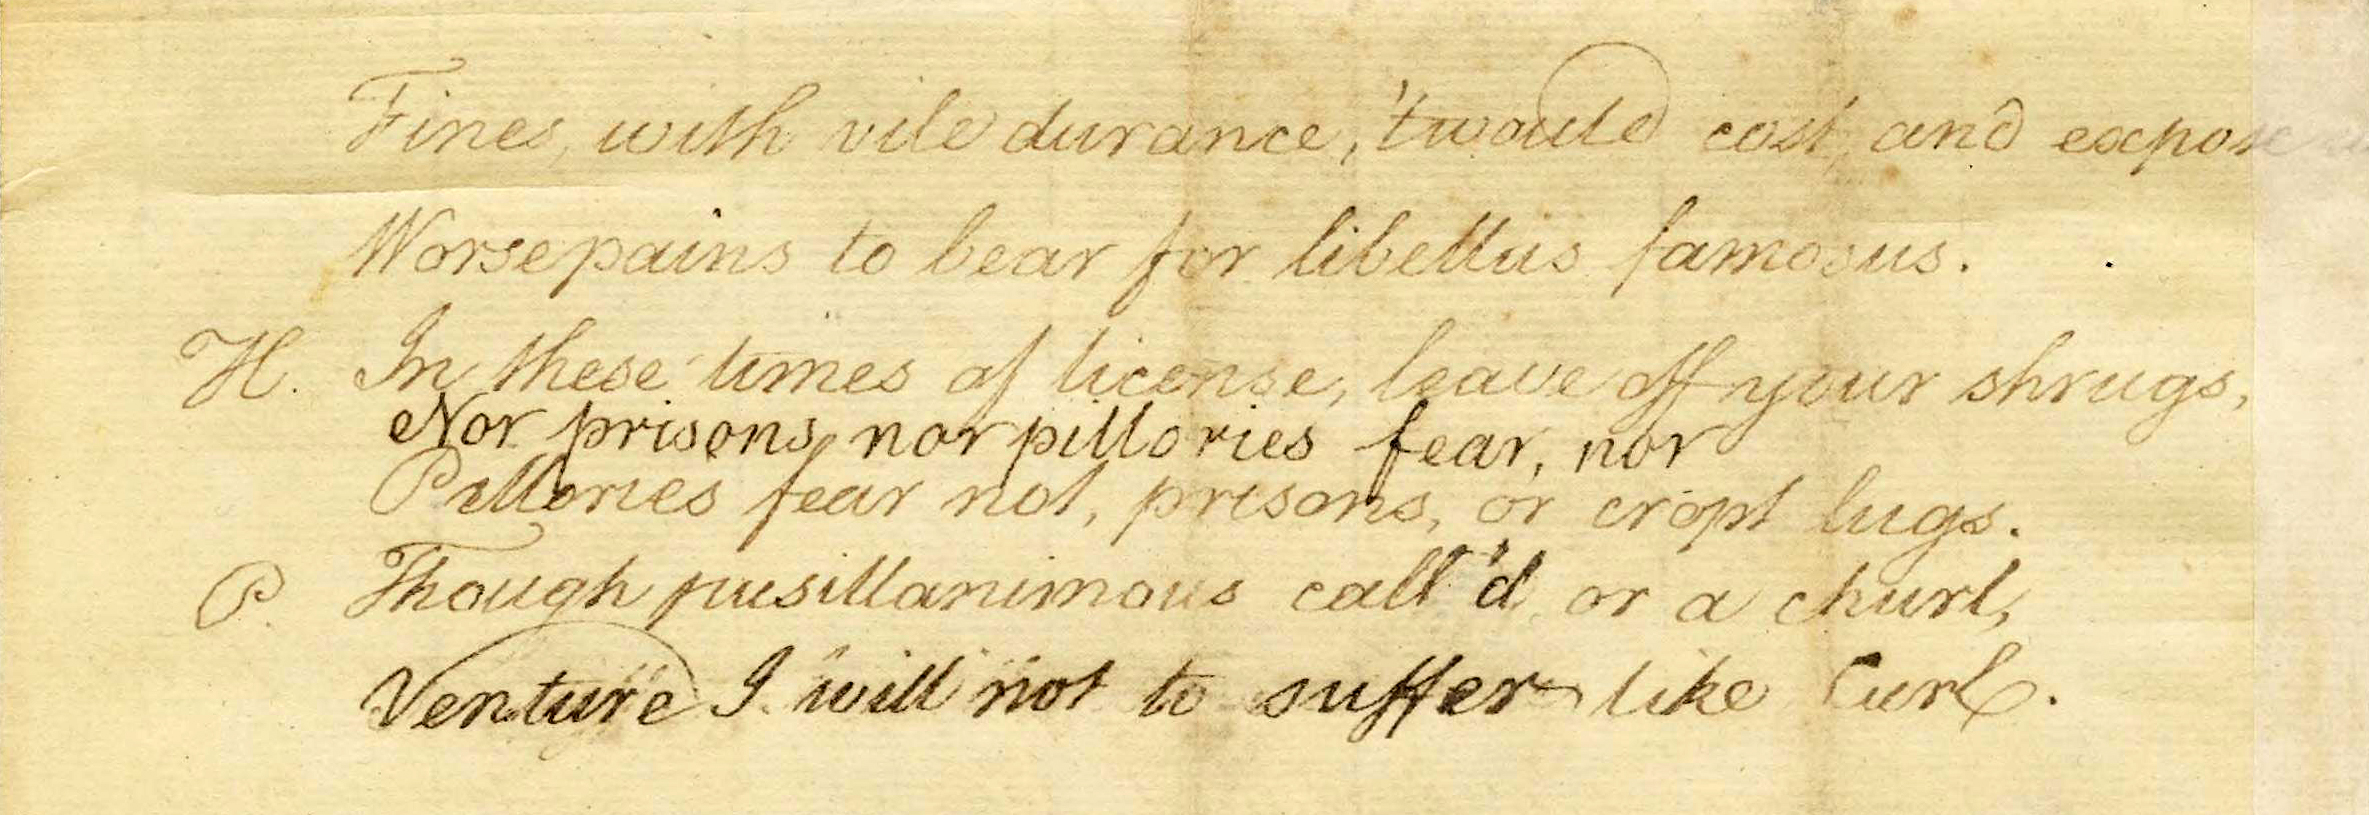 Fines, with vile durance, 'twould cost, and expose
Worse pains to bear for libellus famosus.
H. In these times of license, leave off your shrugs,
Nor prisons, nor pillories fear, nor
Pillories fear not, prisons, or cropt lugs.
P. Though pusillanimous call'd, or a churl,
Venture I will not to suffer like Curl.